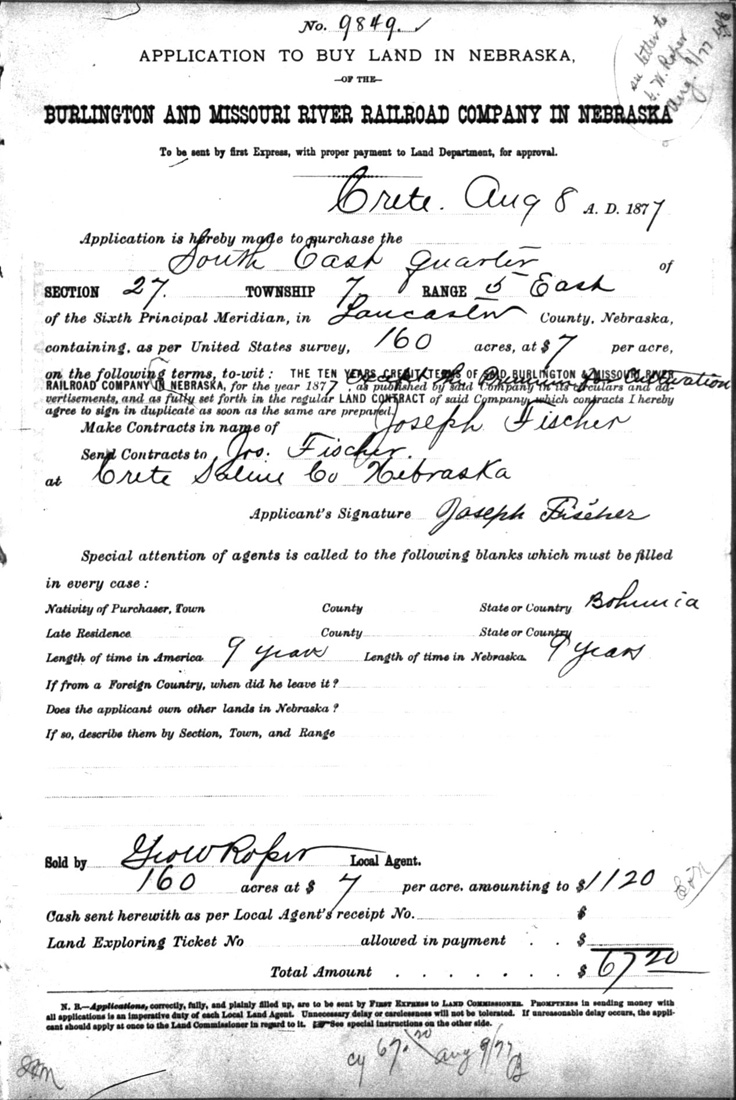 No. 9849.
see letter to
G. W. Roper
Aug. 9/77
APPLICATION TO BUY LAND IN NEBRASKA,
—OF THE—
BURLINGTON AND MISSOURI RIVER RAILROAD COMPANY IN NEBRASKA
To be sent by first Express, with proper payment to Land Department, for approval.
Crete. Aug 8 A. D. 1877
Application is hereby made to purchase the
South East quarter of
SECTION 27. TOWNSHIP 7 RANGE 5 East
of the Sixth Principal Meridian, in Lancaster County, Nebraska,
containing, as per United States survey, 160 acres, at $ 7 per acre,
on the following terms, to-wit: THE TEN YEARS CREDIT TERMS OF SAID BURLINGTON & MISSOURI RIVER
RAILROAD COMPANY IN NEBRASKA, for the year 1877, as published by said Company in its circulars and ad-
vertisements, and as fully set forth in the regular LAND CONTRACT of said Company, which contracts I hereby
agree to sign in duplicate as soon as the same are prepared.
Make Contracts in name of Joseph Fischer
Send Contracts to Jos. Fischer.
at Crete Saline Co Nebraska
Applicant's Signature Joseph Fischer
Special attention of agents is called to the following blanks which must be filled
in every case:
Nativity of Purchaser, Town County State or Country Bohemia
Late Residence County State or Country
Length of time in America 9 years Length of time in Nebraska. 9 years
If from a Foreign Country, when did he leave it?
Does the applicant own other lands in Nebraska?
If so, describe them by Section, Town, and Range
Sold by Geo W Roper Local Agent.
160 acres at $ 7 per acre. amounting to $ 1120
Cash sent herewith as per Local Agent's receipt No. $
Land Exploring Ticket No allowed in payment . . $
Total Amount . . . . . . . $ 67 20
N. B.—Applications, correctly, fully, and plainly filled up, are to be sent by FIRST EXPRESS to LAND COMMISSIONER. PROMPTNESS in sending money with
all applications is an imperative duty of each Local Land Agent. Unnecessary delay or carelessness will not be tolerated. If unreasonable delay occurs, the appli-
cant should apply at once to the Land Commissioner in regard to it. See special instructions on the other side.
67.20 Aug 9/77